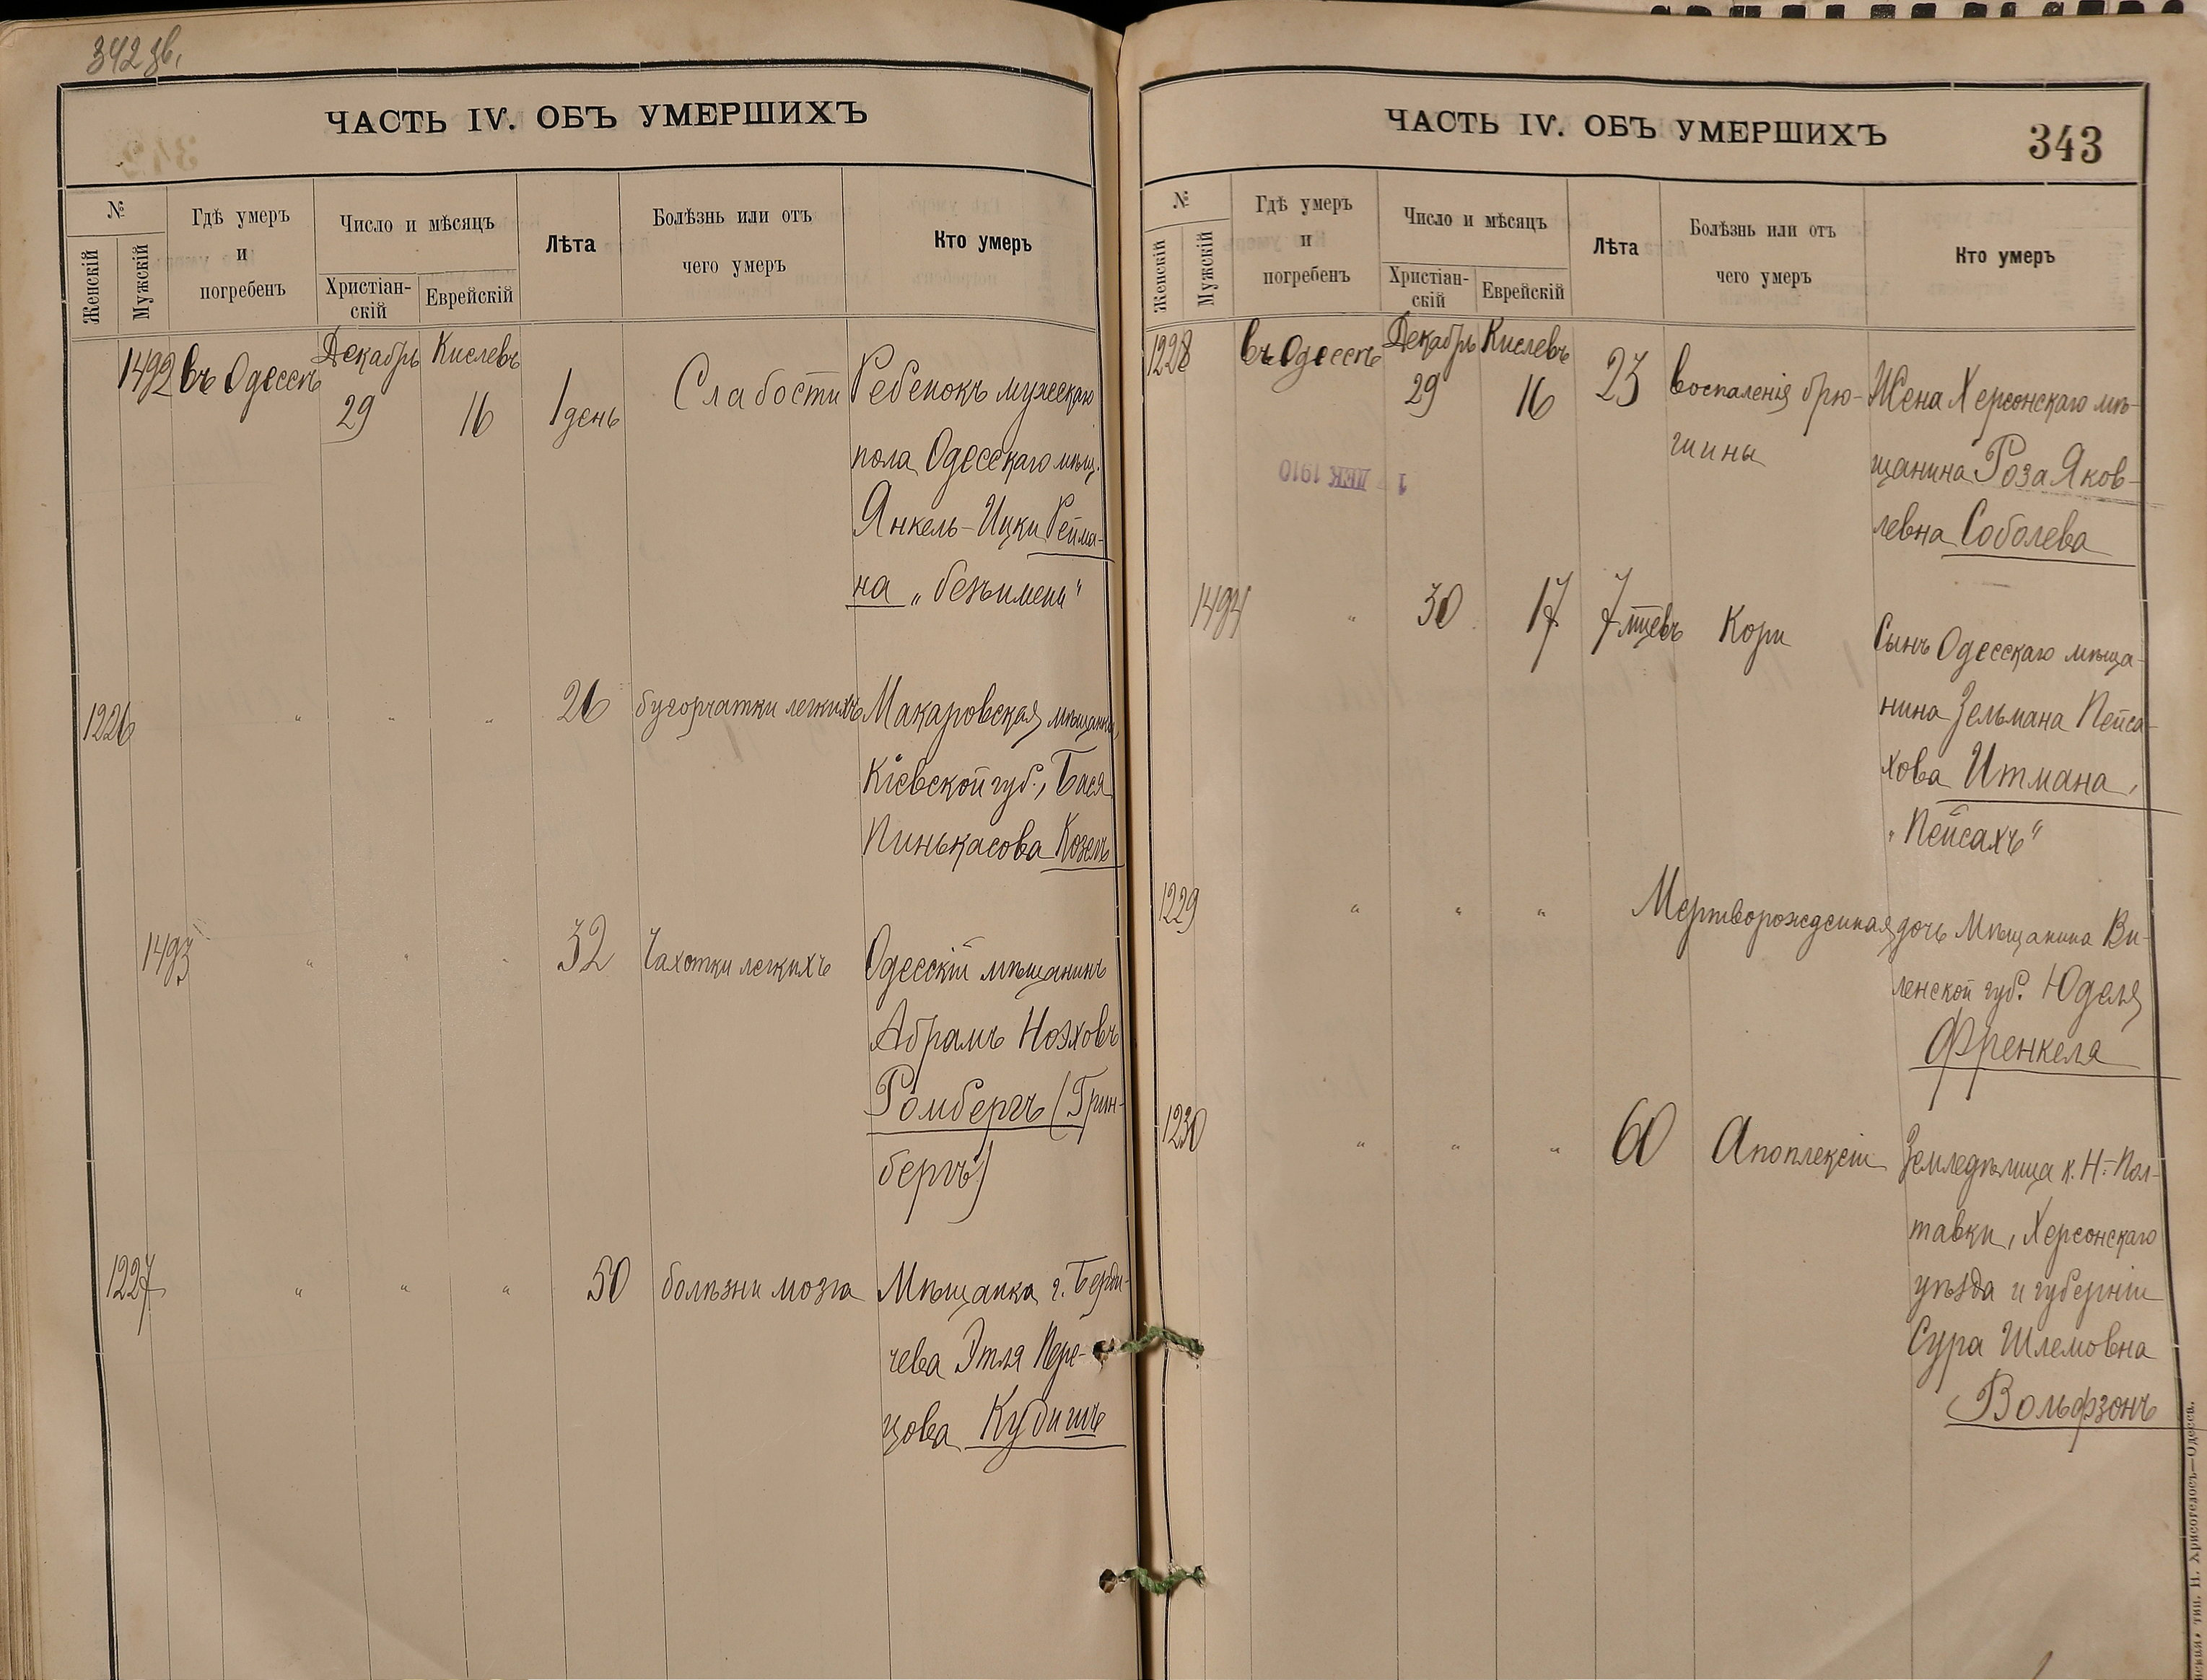 342 зв.
ЧАСТЬ IV. ОБЪ УМЕРШИХЪ
№
Женскій
Мужскій
Гдѣ умеръ
и
погребенъ
Число и мѣсяцъ
Христіан-
скій
Еврейскій
Лѣта
Болѣзнь или отъ
чего умеръ
Кто умеръ
1492 въ Одессѣ Декабрь 29 Кислевъ 16 1 день Слабости Ребенокъ мужскаго
пола Одесскаго мѣщ.
Янкель-Ицки Рейма-
на „безъ имени"
1226 " " " 26 бугорчатки легкихъ Макаровская мѣщанка,
Кіевской губ., Бася
Пинькасова Козелъ
1493 " " " 32 Чахотки легкихъ Одесскій мѣщанинъ
Абрамъ Ноэховъ
Ромбергъ (Грин-
бергъ)
1227 " " " 50 болѣзни мозга Мѣщанка г. Берди-
чева Этля Пере-
цова Кубишъ
ЧАСТЬ IV. ОБЪ УМЕРШИХЪ
343
№
Женскій
Мужскій
Гдѣ умеръ
и
погребенъ
Число и мѣсяцъ
Христіан-
скій
Еврейскій
Лѣта
Болѣзнь или отъ
чего умеръ
Кто умеръ
1228 въ Одессѣ Декабрь 29 Кислевъ 16 23 воспаленія брю- Жена Херсонскаго мѣ-
шины щанина Роза Яков-
левна Соболева
1 ДЕК 1910
1494 " 30 17 7 мцевъ Кори Сынъ Одесскаго мѣща-
нина Зельмана Пейса-
хова Итмана,
„Пейсахъ"
1229 " " " Мертворожденная дочь Мѣщанина Ви-
ленской губ. Юделя
Френкеля
1230 " " " 60 Апоплексіи Земледѣлица к. Н.-Пол-
тавки, Херсонскаго
уѣзда и губерніи
Сура Шлемовна
Вольфзонъ
тип. Н. Хрисогелосъ—Одесса.